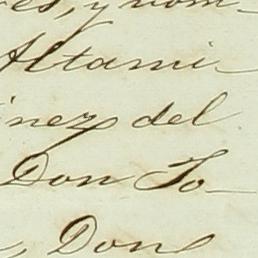 es, y nom-
Altami-
inez del
Don To-
, Don